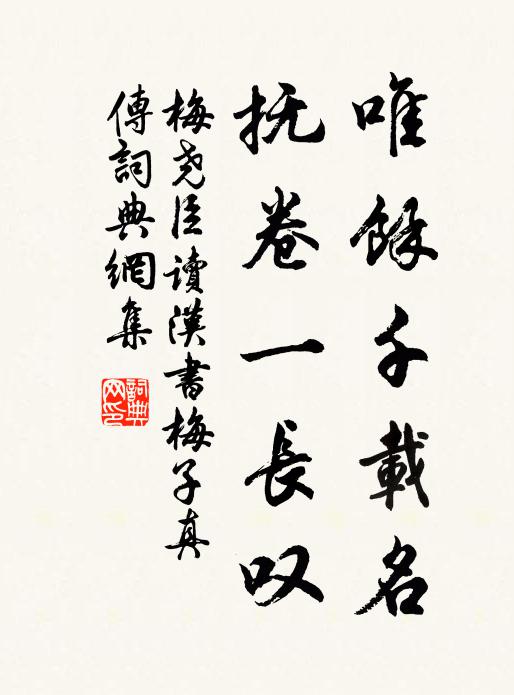 唯餘千載名
抚卷一長叹
梅尧臣讀漢書梅子真
傳詞典網集
詞典
网印